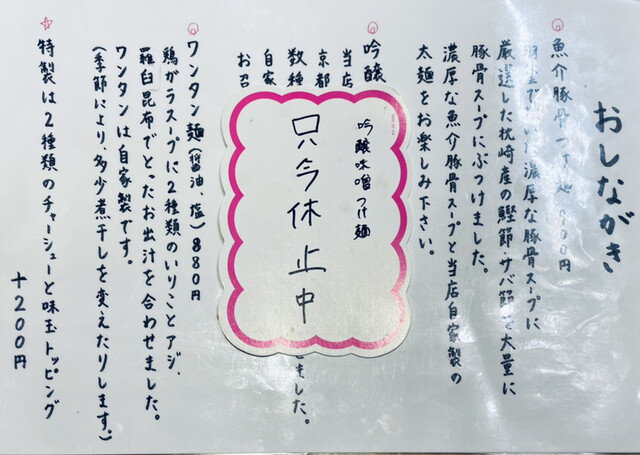 おしながき
魚介豚骨つけ麺 800円
厳選した枕崎産の鰹節・サバ節を大量に
豚骨スープにぶつけました。
濃厚な魚介豚骨スープと当店自家製の
太麺をお楽しみ下さい。
吟醸
当店
京都
数種
自家
お召
ました。
吟醸味噌つけ麺
只今休止中
ワンタン麺(醤油、塩) 880円
鶏ガラスープに2種類のいりことアジ、
羅臼昆布でとったお出汁を合わせました。
ワンタンは自家製です。
(季節により、多少煮干しを変えたりします。)
特製は2種類のチャーシューと味玉トッピング
+200円